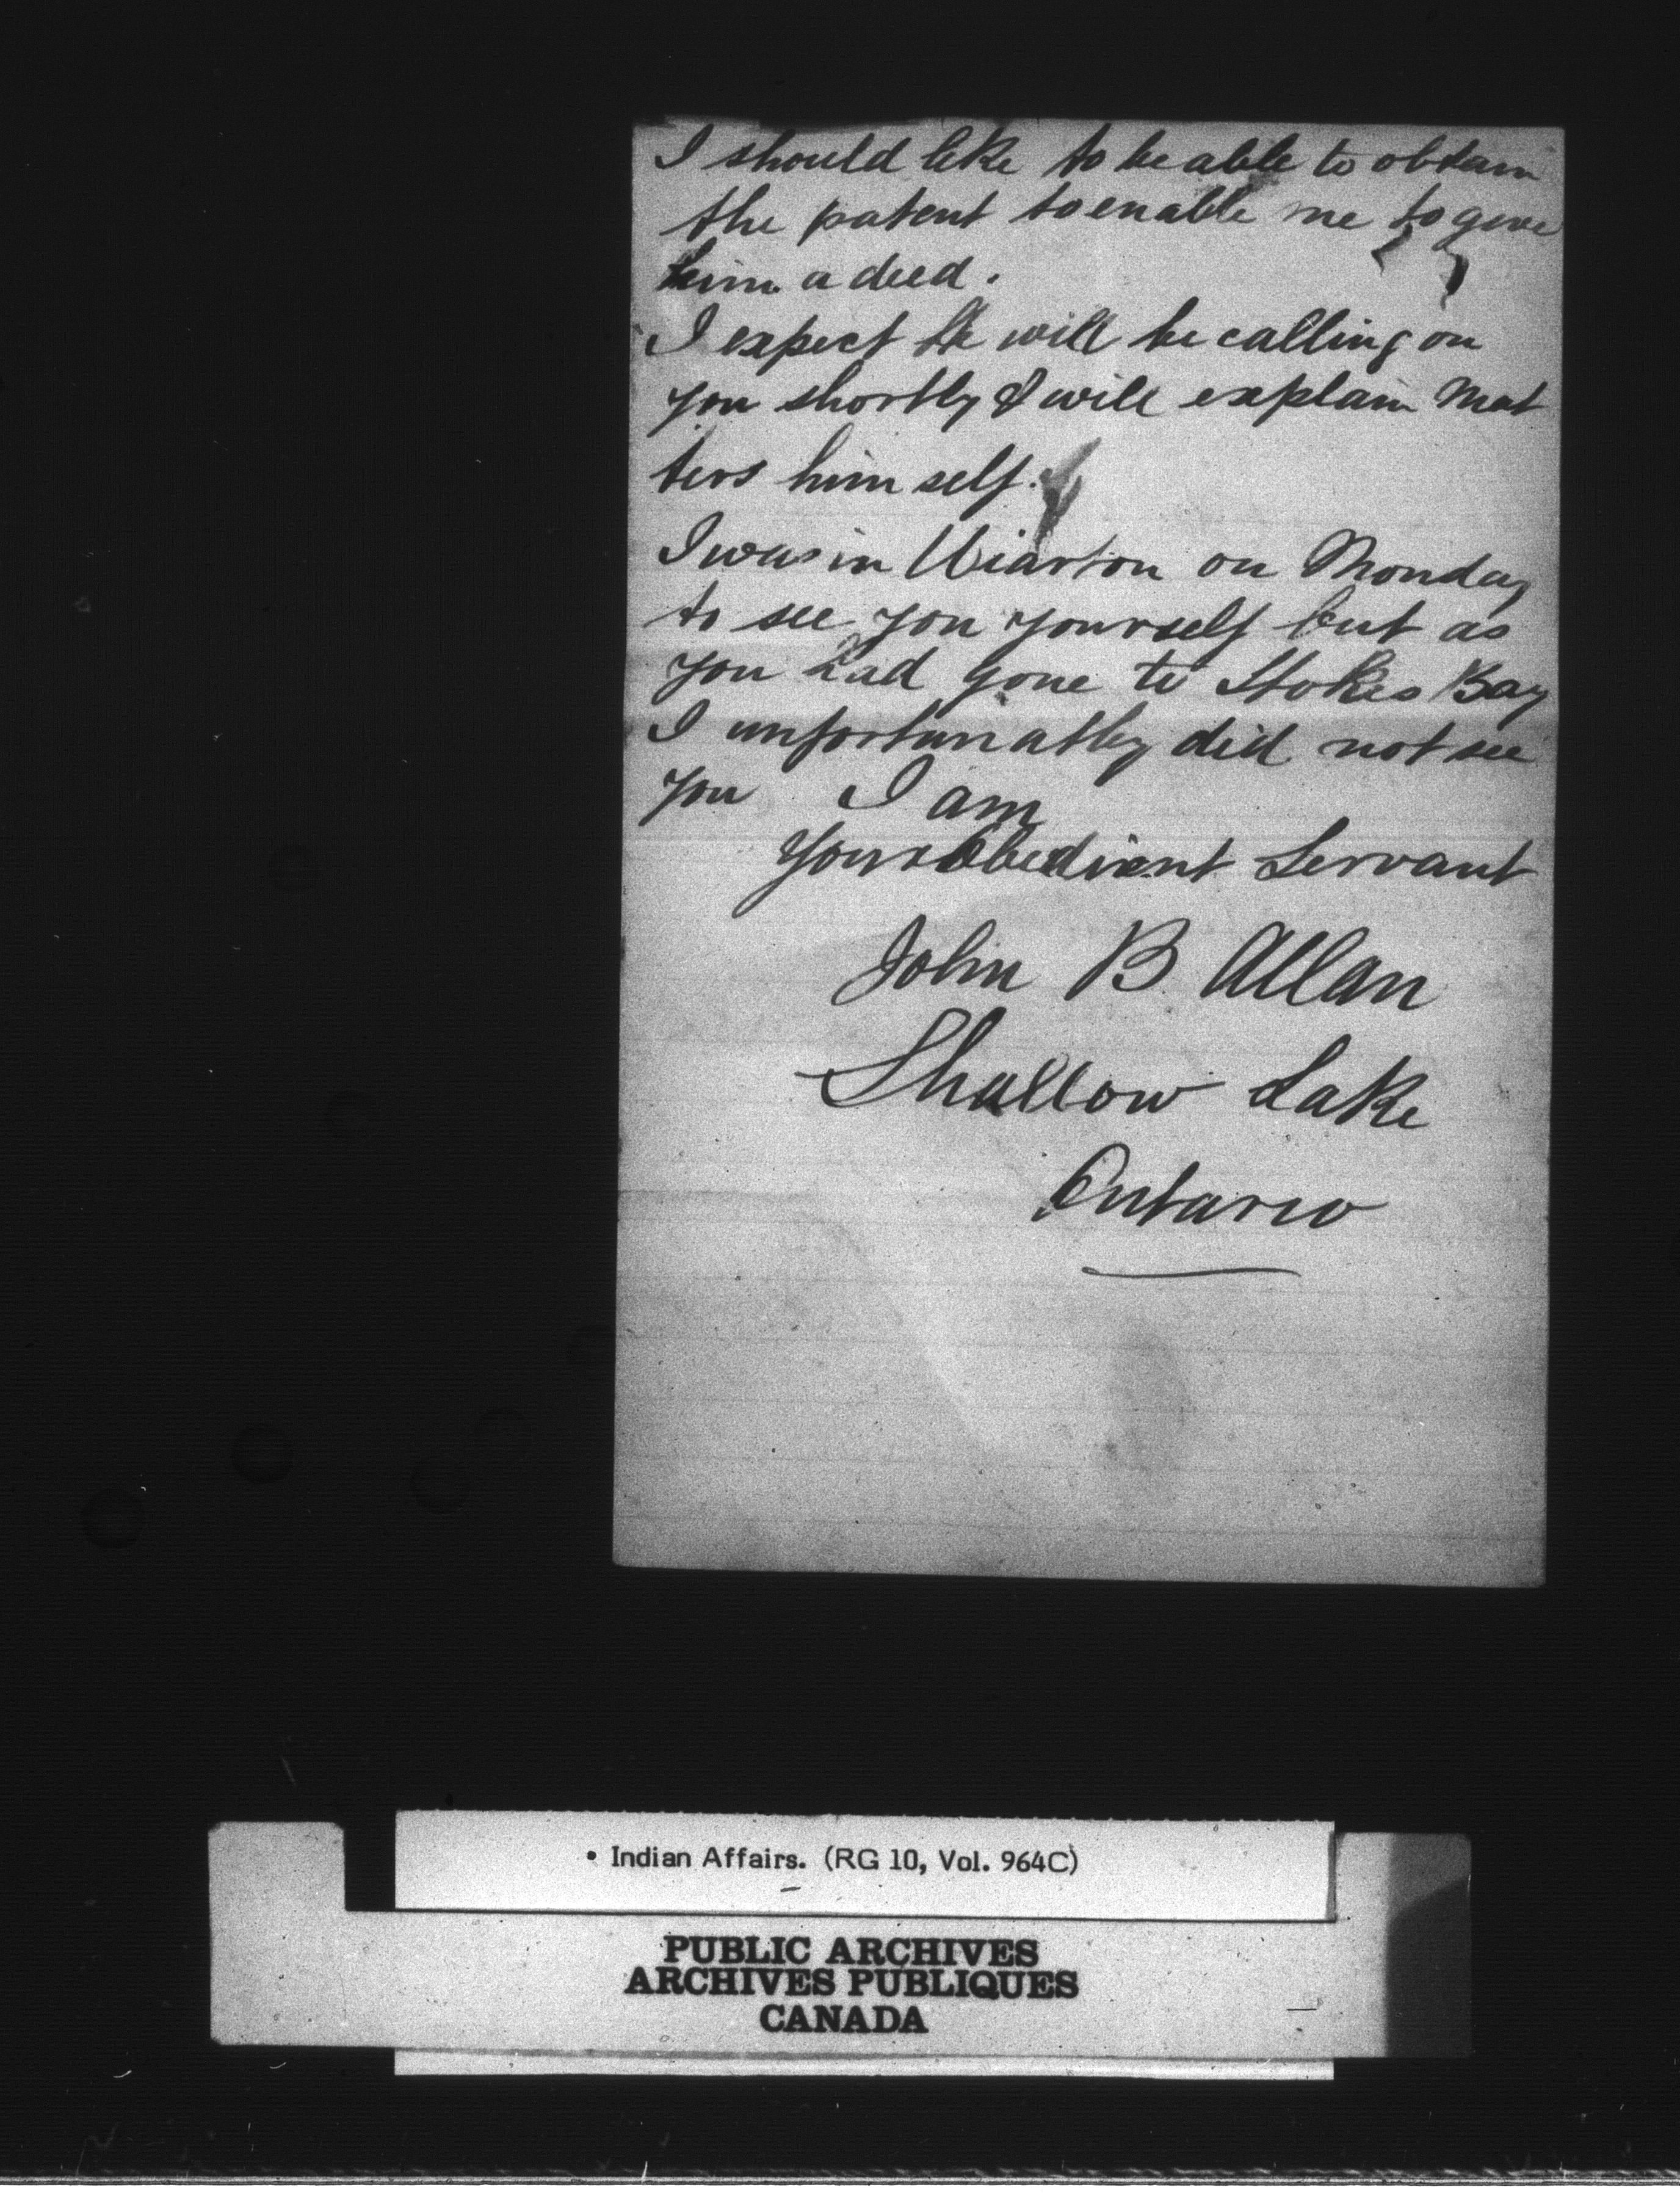 I should like to be able to obtain
the patent to enable me to give
him a deed.
I expect He will be calling on
you shortly & will explain Mat
ters himself.
I was in Wiarton on Monday
to see you yourself but as
you had gone to Stokes Bay
I unfortunatly did not see
you I am
Your Obedient Servant
John B Allan
Shallow Lake
Ontario
• Indian Affairs. (RG 10, Vol. 964C)
PUBLIC ARCHIVES
ARCHIVES PUBLIQUES
CANADA